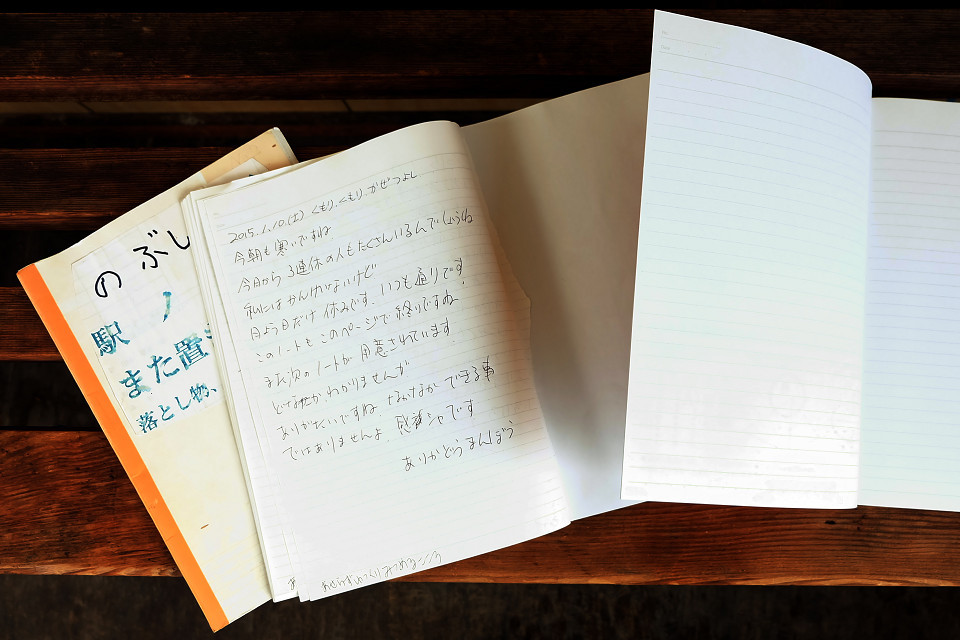 のぶし
駅ノ
また置
落とし物、
2015.1.10.(土) くもり.くもり.かぜつよし
今朝も寒いですね
今日から 3連休の人もたくさんいるんでしょうね
私にはかんけいないけど
日よう日だけ休みです. いつも通りです
このノートもこのページで終りですね.
また次のノートが用意されています.
どなたかわかりませんが
ありがたいですね. なかなかできる事
ではありませんよ. 感謝シャです
ありがどうまんぼう